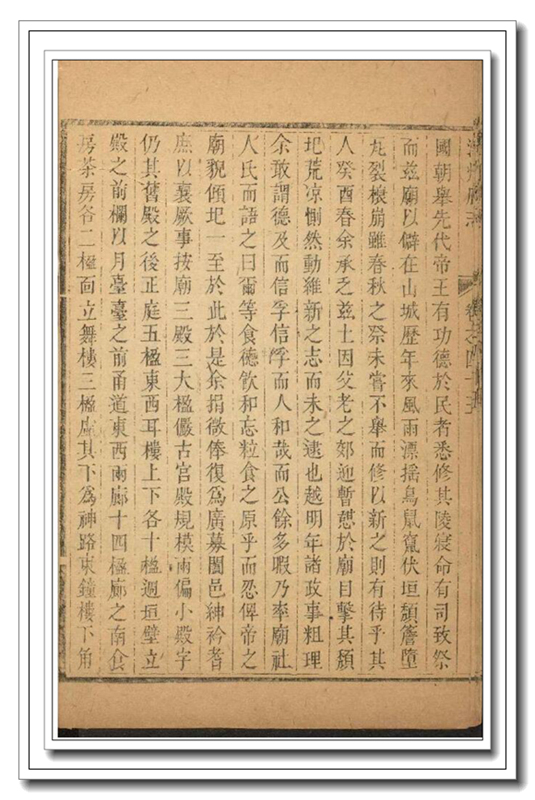 國朝舉先代帝王有功德於民者悉修其陵寢命有司致祭
而兹廟以僻在山城歷年來風雨漂搖鳥鼠竄伏垣頽簷墮
瓦裂榱崩雖春秋之祭未嘗不舉而修以新之則有待乎其
人癸酉春余承乏兹土因父老之郊迎暫憇於廟目擊其頽
圮荒凉惻然動維新之志而未之逮也越明年諸政事粗理
余敢謂德及而信孚信孚而人和哉而公餘多暇乃率廟社
人氏而語之曰爾等食德飲和忘粒食之原乎而忍俾帝之
廟貌傾圮一至於此於是余捐微俸復爲廣募闔邑紳衿耆
庶以襄厥事按廟三殿三大楹儼古宫殿規模兩偏小殿字
仍其舊殿之後正庭五楹東西耳樓上下各十楹週垣壁立
殿之前欄以月臺臺之前甬道東西兩廊十四楹廊之南食
房茶房各二楹面立舞樓三楹虛其下爲神路東鐘樓下角